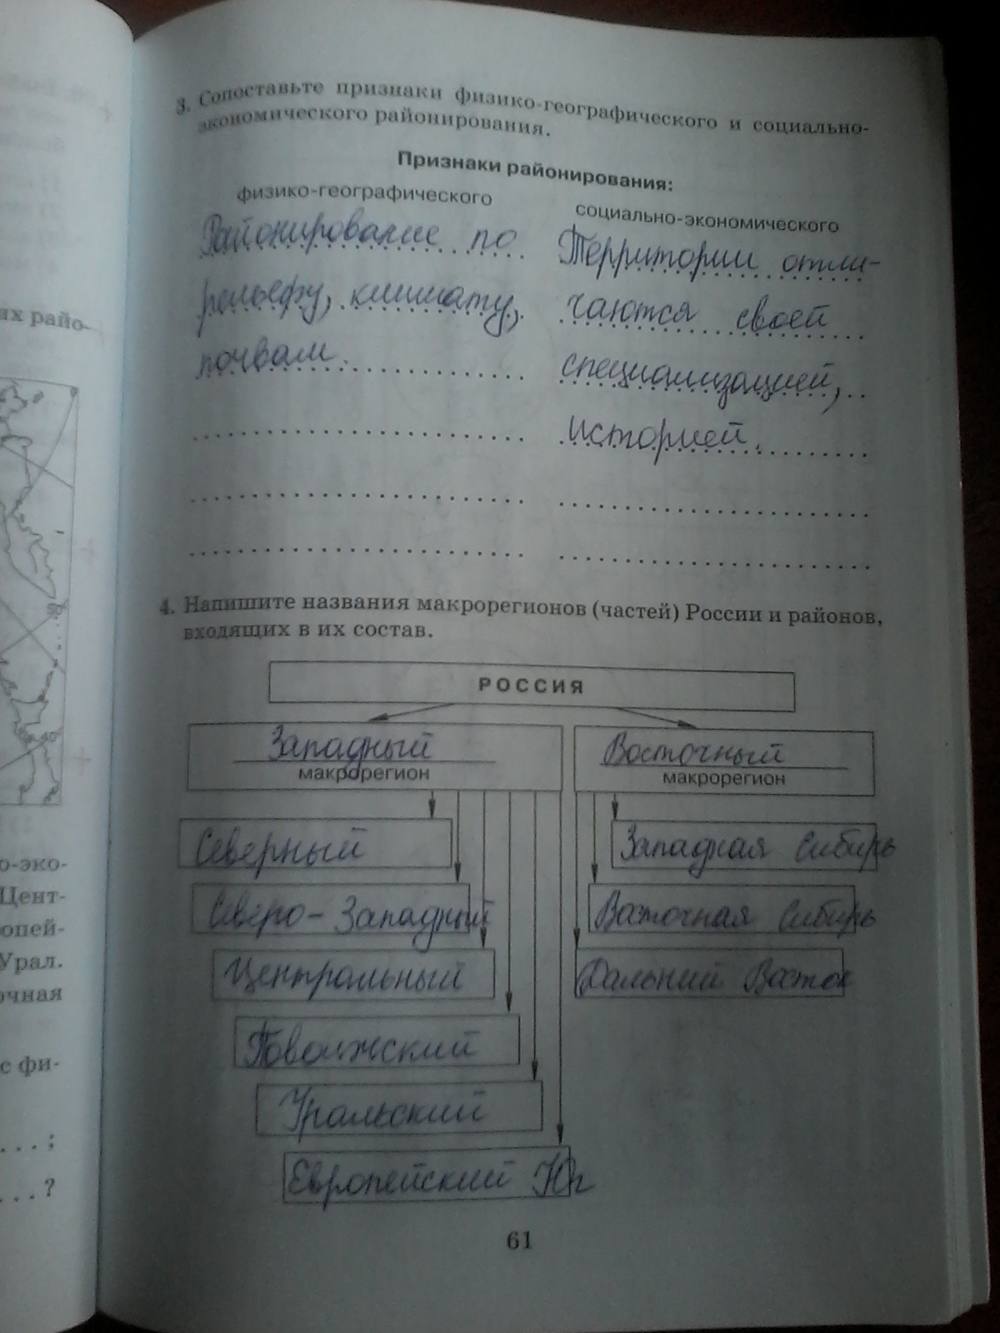 3. Сопоставьте признаки физико-географического и социально-
экономического районирования.
Признаки районирования:
физико-географического
социально-экономического
Районирование по
рельефу, климату,
почвам.
Территории отли-
чаются своей
специализацией,
историей.
4. Напишите названия макрорегионов (частей) России и районов,
входящих в их состав.
РОССИЯ
Западный
макрорегион
Восточный
макрорегион
Северный
Северо-Западный
Центральный
Поволжский
Уральский
Европейский Юг
Западная Сибирь
Восточная Сибирь
Дальний Восток
61
их райо-
50
40
о-эко-
Цент-
опей-
Урал.
очная
с фи-
. . . ;
. . . ?